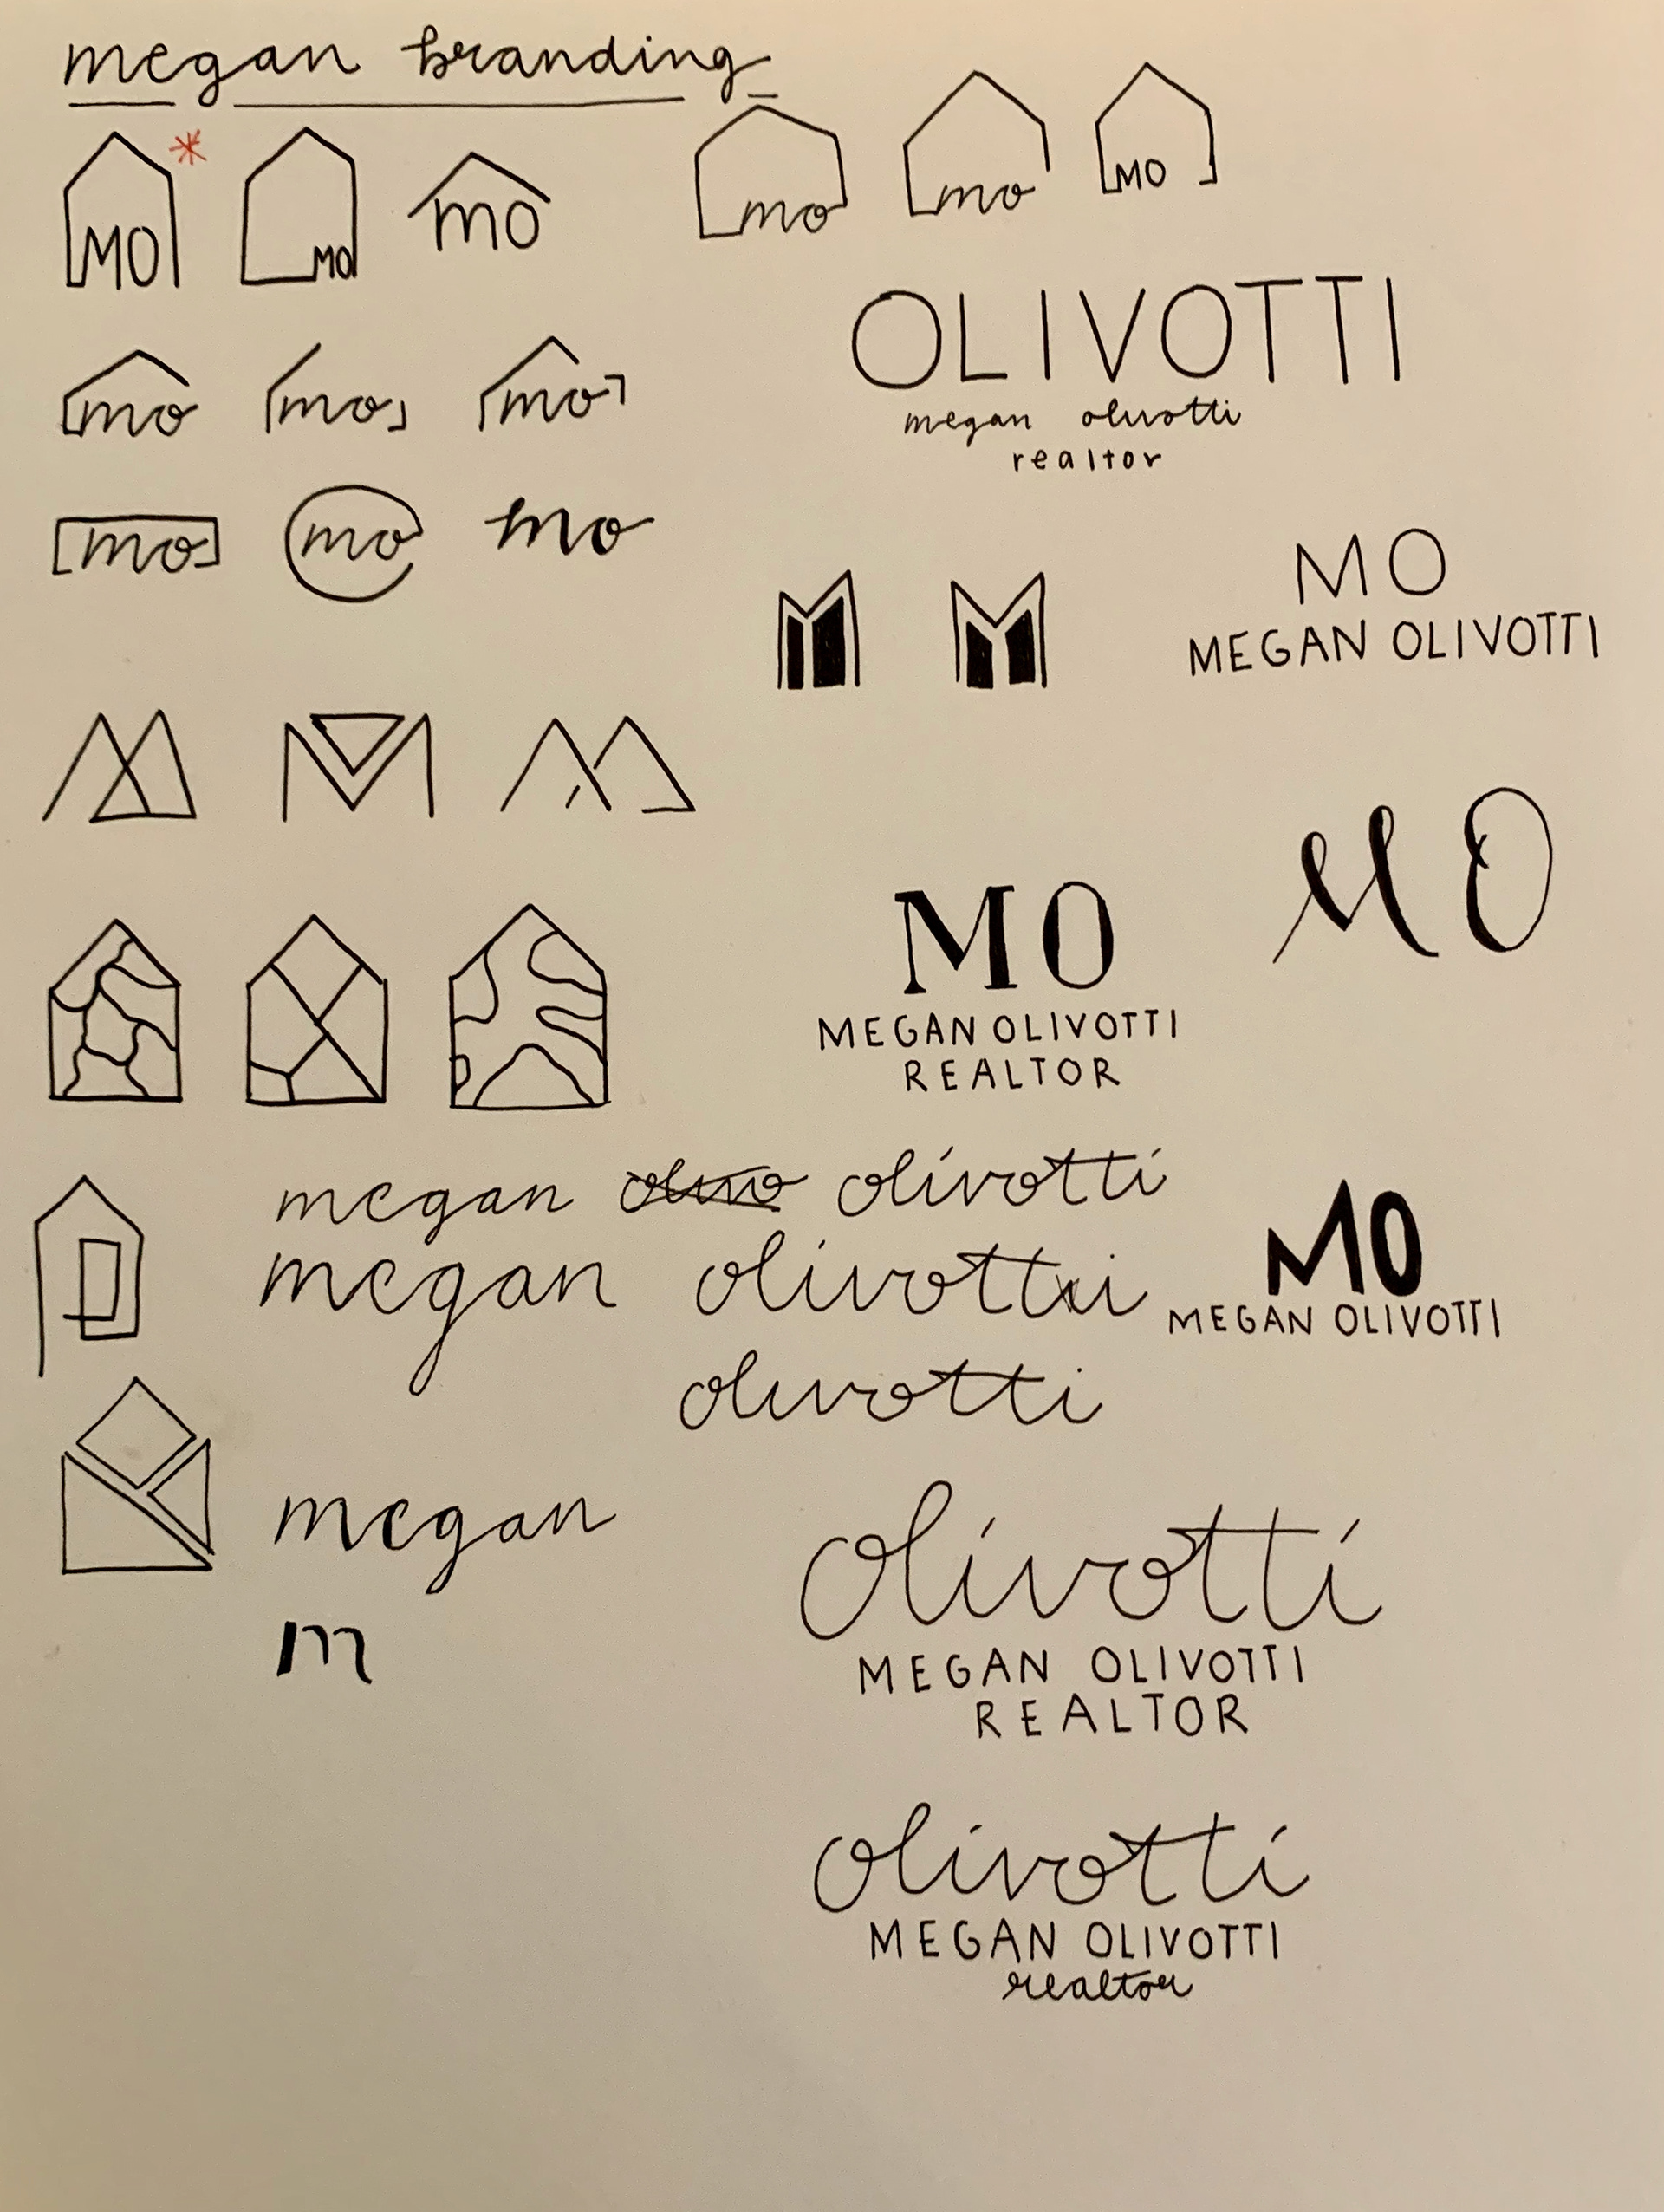 megan branding
MO
MO
mo
mo
mo
MO
OLIVOTTI
megan olivotti
realtor
mo
mo
mo
mo
mo
mo
M
M
MO
MEGAN OLIVOTTI
M
M
M
MO
MO
MEGAN OLIVOTTI
REALTOR
megan olivotti
megan olivotti
olivotti
MO
MEGAN OLIVOTTI
megan
m
olivotti
MEGAN OLIVOTTI
REALTOR
olivotti
MEGAN OLIVOTTI
realtor